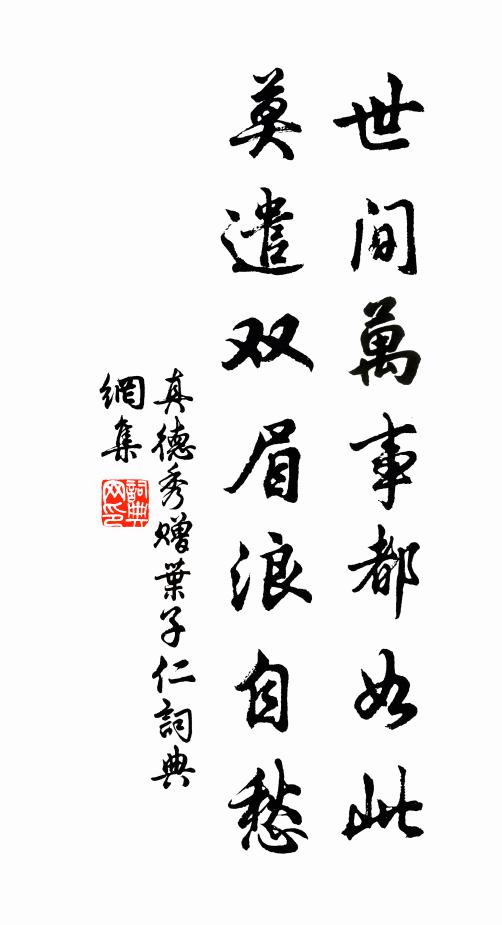 世间萬事都如此
莫遣双眉浪自愁
真德秀赠葉子仁詞典
網集
詞典
网印